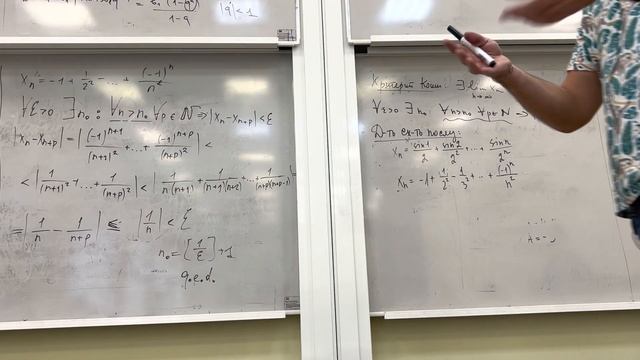 (1-qⁿ)
1-q
|q|<1
Xₙ = -1 + 1/2² - ... + (-1)ⁿ/n
∀ε>0 ∃n₀: ∀n>n₀ ∀p∈ℕ ⇒ |xₙ-xₙ₊ₚ|<ε
|xₙ-xₙ₊ₚ| = |(-1)ⁿ⁺¹/(n+1)² + ... + (-1)ⁿ⁺ᵖ/(n+p)²| <
< |1/(n+1)² + ... + 1/(n+p)²| < |1/n(n+1) + 1/(n+1)(n+2) + ... + 1/(n+p)(n+p-1)|
= |1/n - 1/(n+p)| ≤ |1/n| < ε
n₀ = [1/ε] + 1
q.e.d.
Критерий Коши: ∃ lim xₙ
n→∞
∀ε>0 ∃n₀ ∀n>n₀ ∀p∈ℕ ⇒
Д-ть сх-ть послед:
xₙ = sin1/2 + sin2/2² + ... + sin n/2ⁿ
Xₙ = -1 + 1/2² - 1/3² + ... + (-1)ⁿ/n²